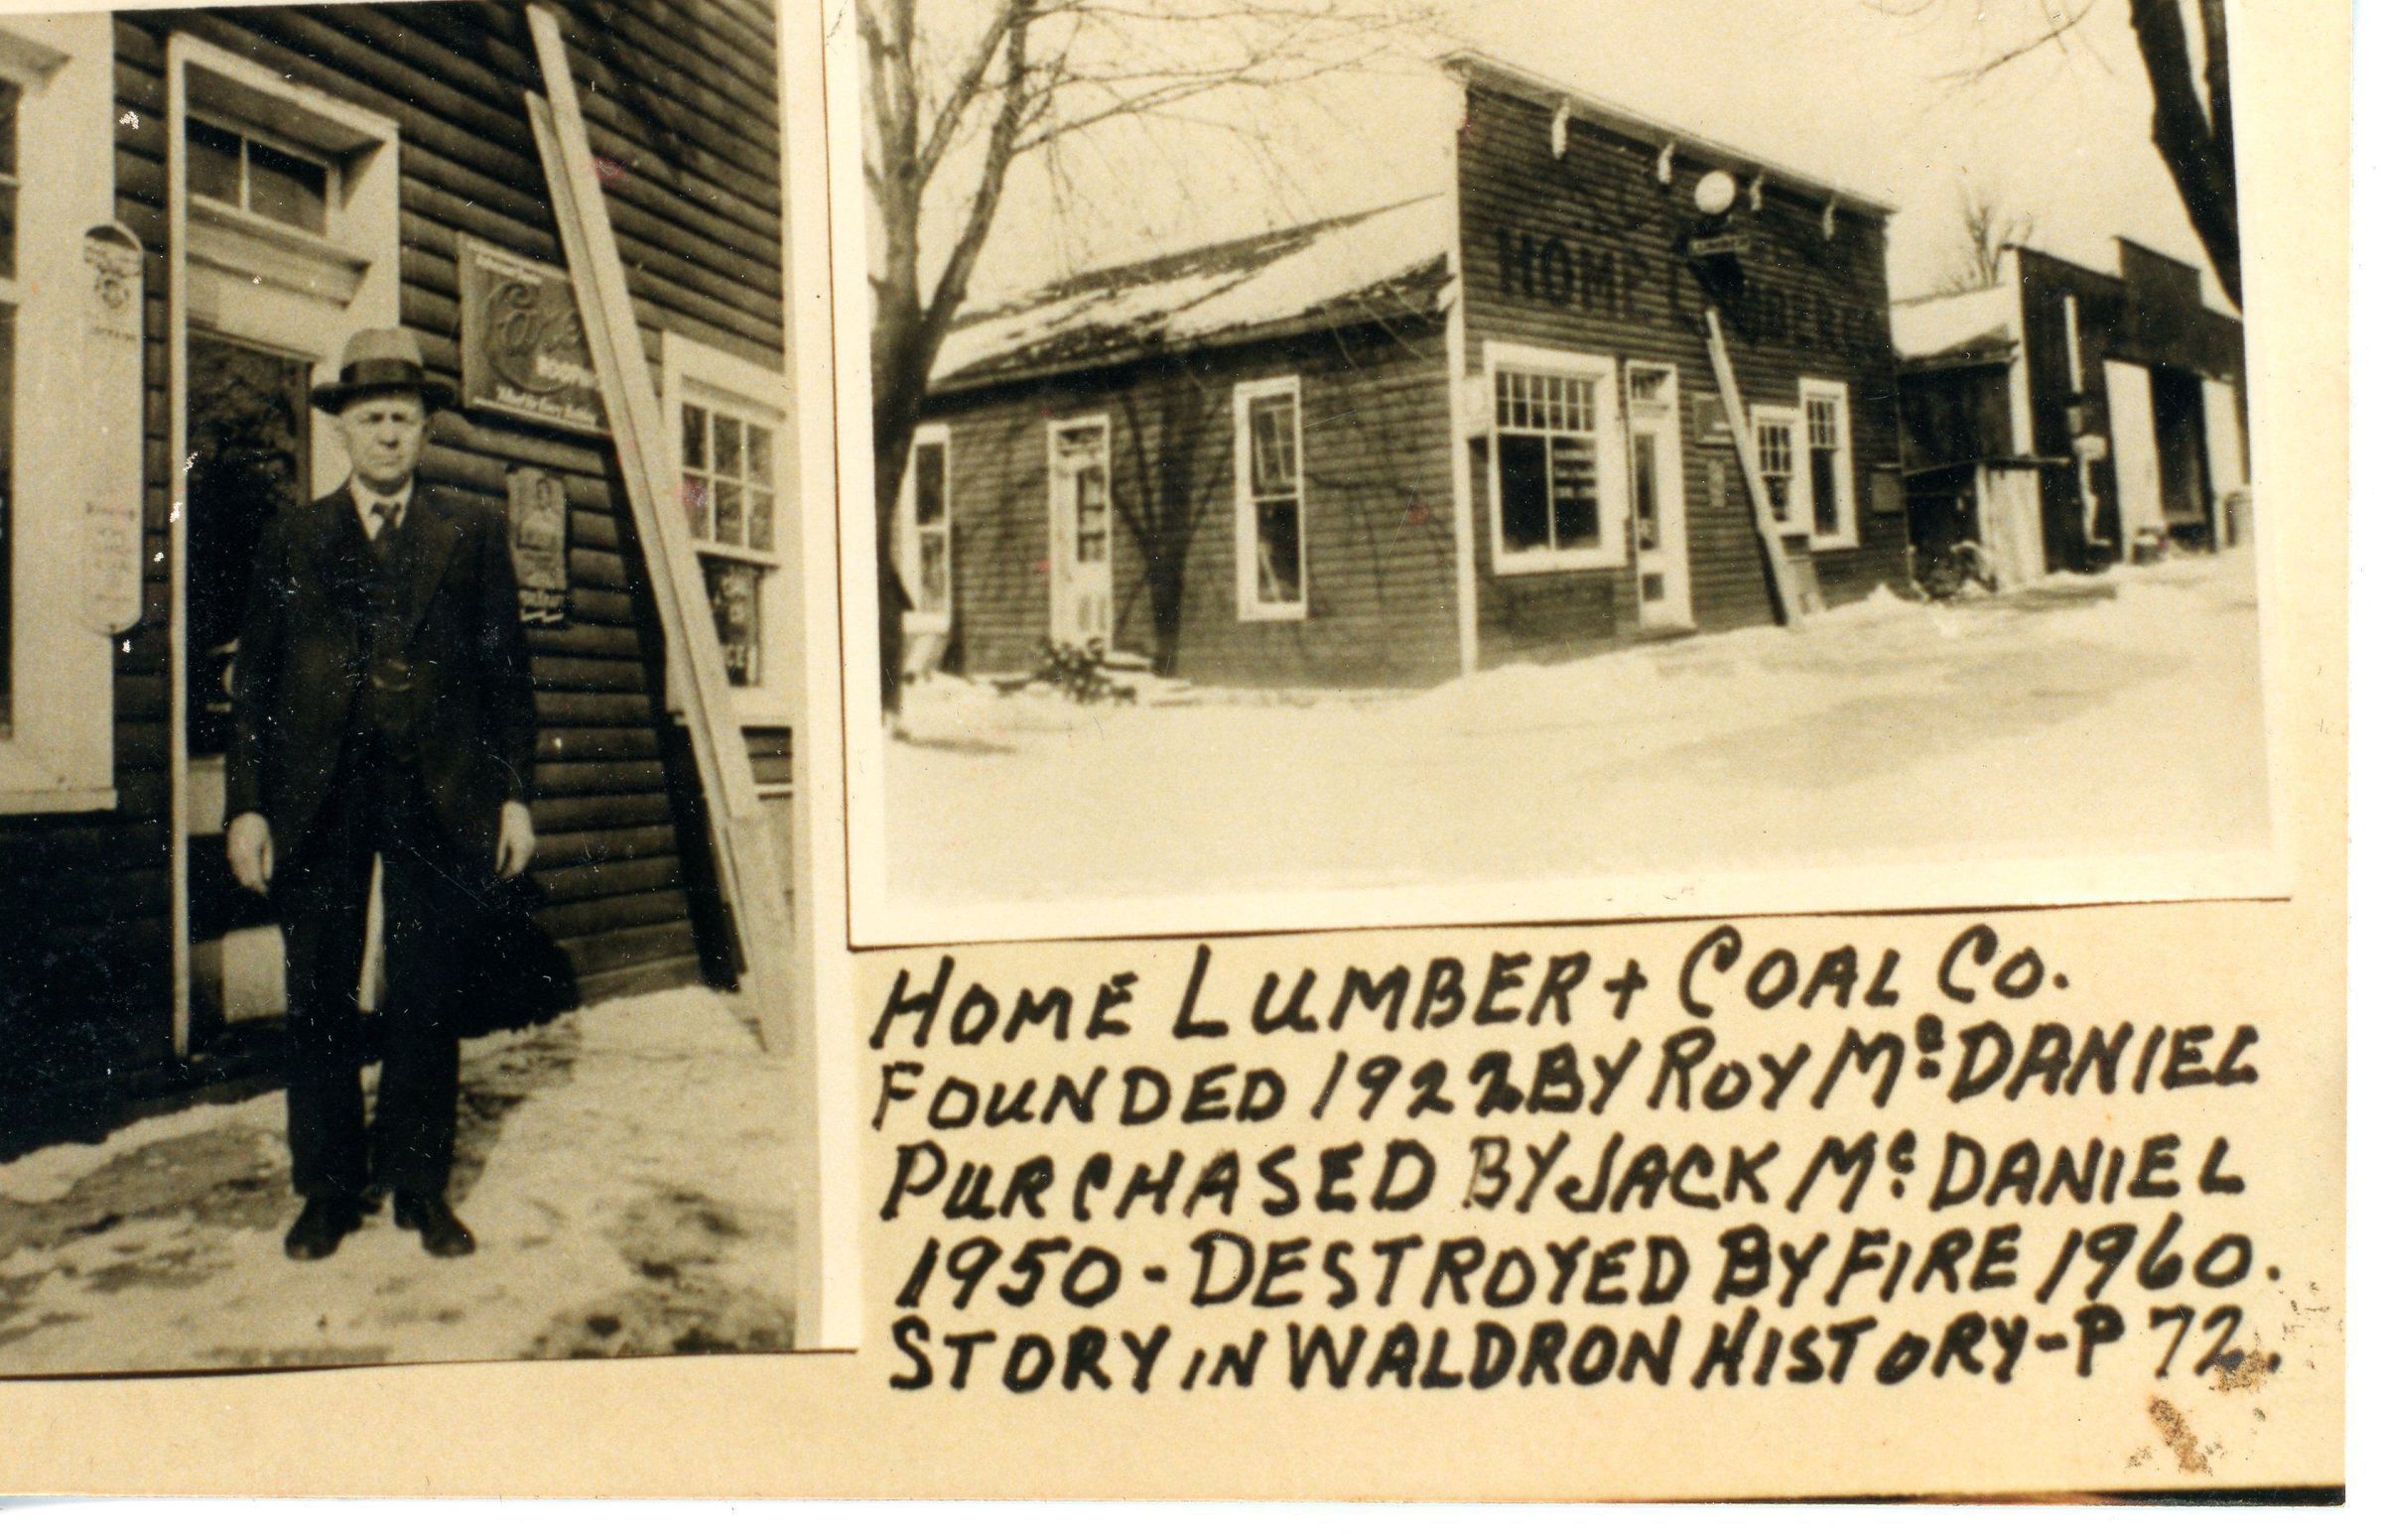 HOME LUMBER
HOME LUMBER + COAL CO.
FOUNDED 1922 BY ROY McDANIEL
PURCHASED BY JACK McDANIEL
1950 - DESTROYED BY FIRE 1960.
STORY IN WALDRON HISTORY - P 72.